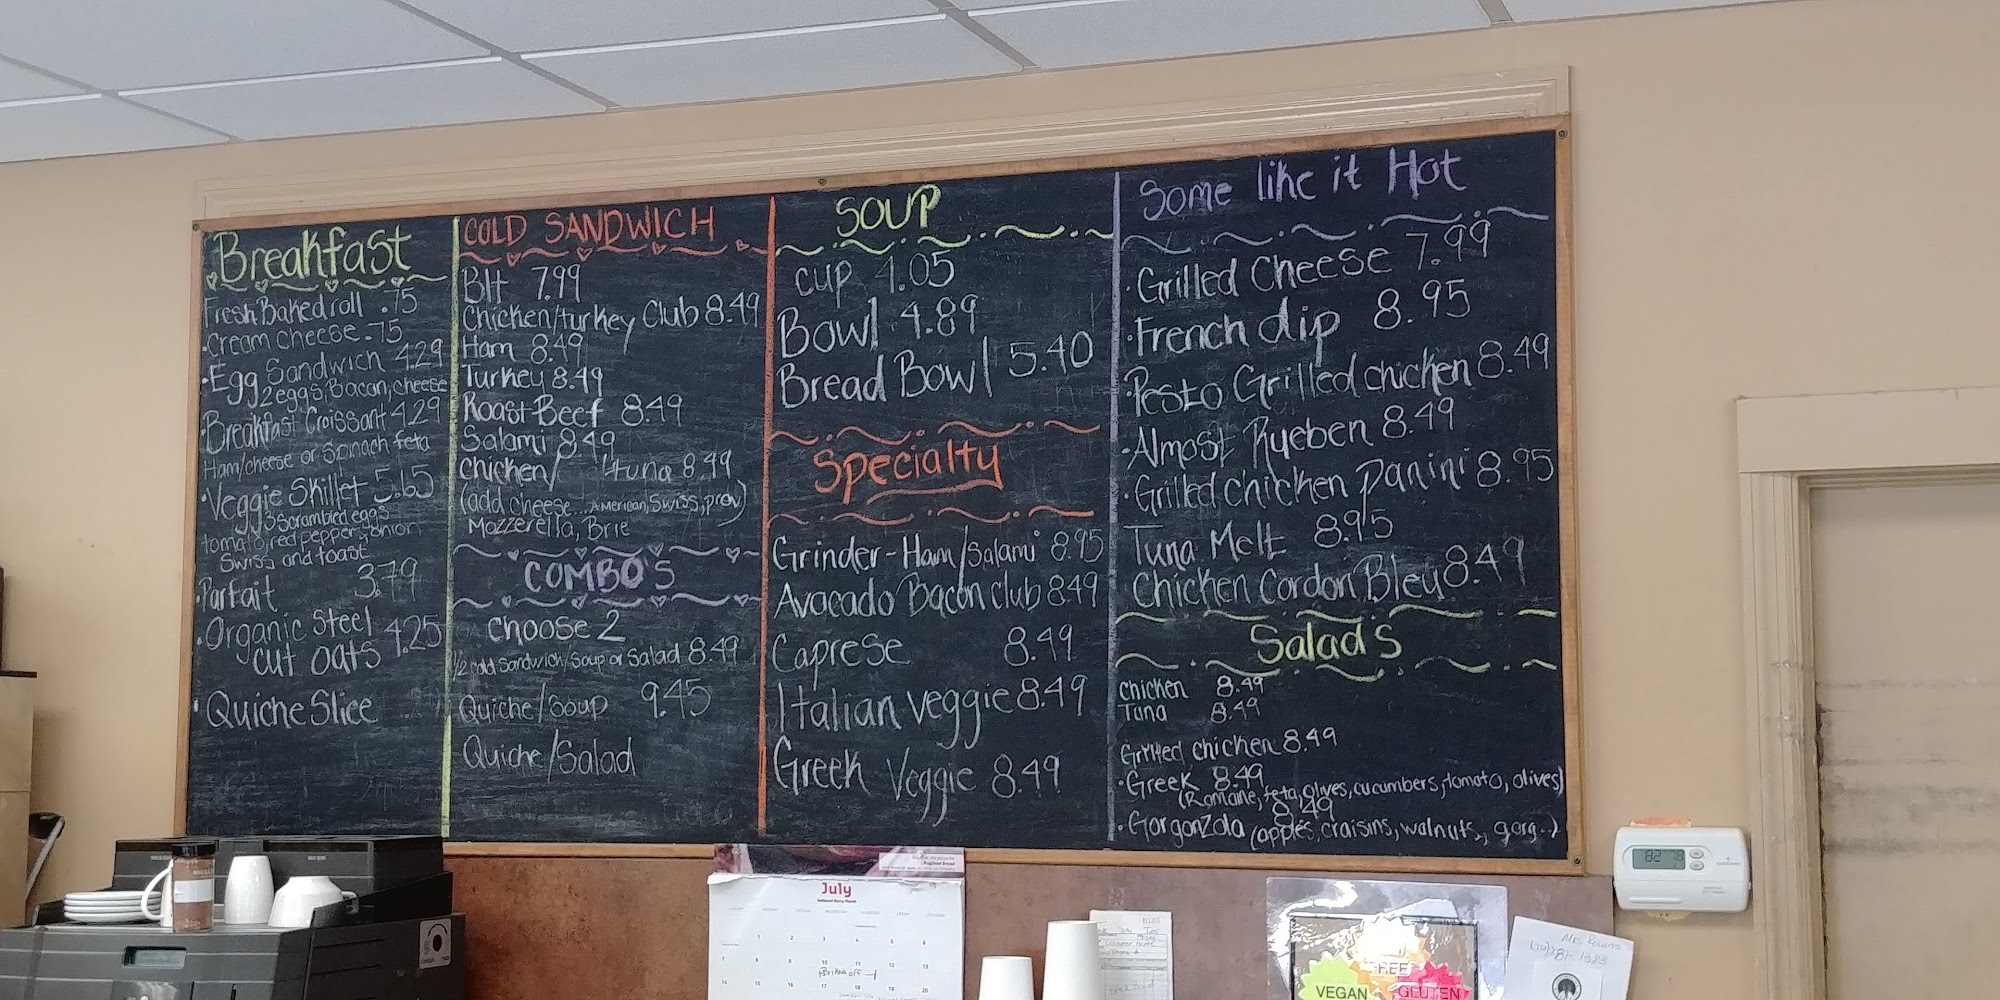 Breakfast
Fresh Baked roll .75
·Cream cheese .75
·Egg Sandwich 4.29
2 eggs, Bacon, cheese
·Breakfast Croissant 4.29
Ham/cheese or Spinach feta
·Veggie Skillet 5.65
3 scrambled eggs
tomato, red peppers, onion,
Swiss and toast
·Parfait 3.79
·Organic Steel
cut oats 4.25
·Quiche Slice
COLD SANDWICH
Blt 7.99
Chicken/turkey Club 8.49
Ham 8.49
Turkey 8.49
Roast Beef 8.49
Salami 8.49
Chicken/ Tuna 8.49
(add cheese... American, Swiss, prov)
Mozzerella, Brie
COMBO'S
Choose 2
1/2 cold sandwich/Soup or Salad 8.49
Quiche/Soup 9.45
Quiche/Salad
SOUP
cup 4.05
Bowl 4.89
Bread Bowl 5.40
Specialty
Grinder-Ham/Salami 8.95
Avocado Bacon club 8.49
Caprese 8.49
Italian veggie 8.49
Greek Veggie 8.49
Some like it Hot
·Grilled Cheese 7.99
·French dip 8.95
Pesto Grilled chicken 8.49
·Almost Rueben 8.49
·Grilled chicken panini 8.95
Tuna Melt 8.95
Chicken Cordon Bleu 8.49
Salads
Chicken 8.49
Tuna 8.49
Grilled chicken 8.49
·Greek 8.49
(Romaine, feta, olives, cucumbers, tomato, olives)
8.49
·Gorgonzola (apples, craisins, walnuts, gorg..)
July
1 2 3 4 5 6
7 8 9 10 11 12 13
14 15 16 17 18 19 20
82
FREE
VEGAN
GLUTEN
Mrs. Roberts